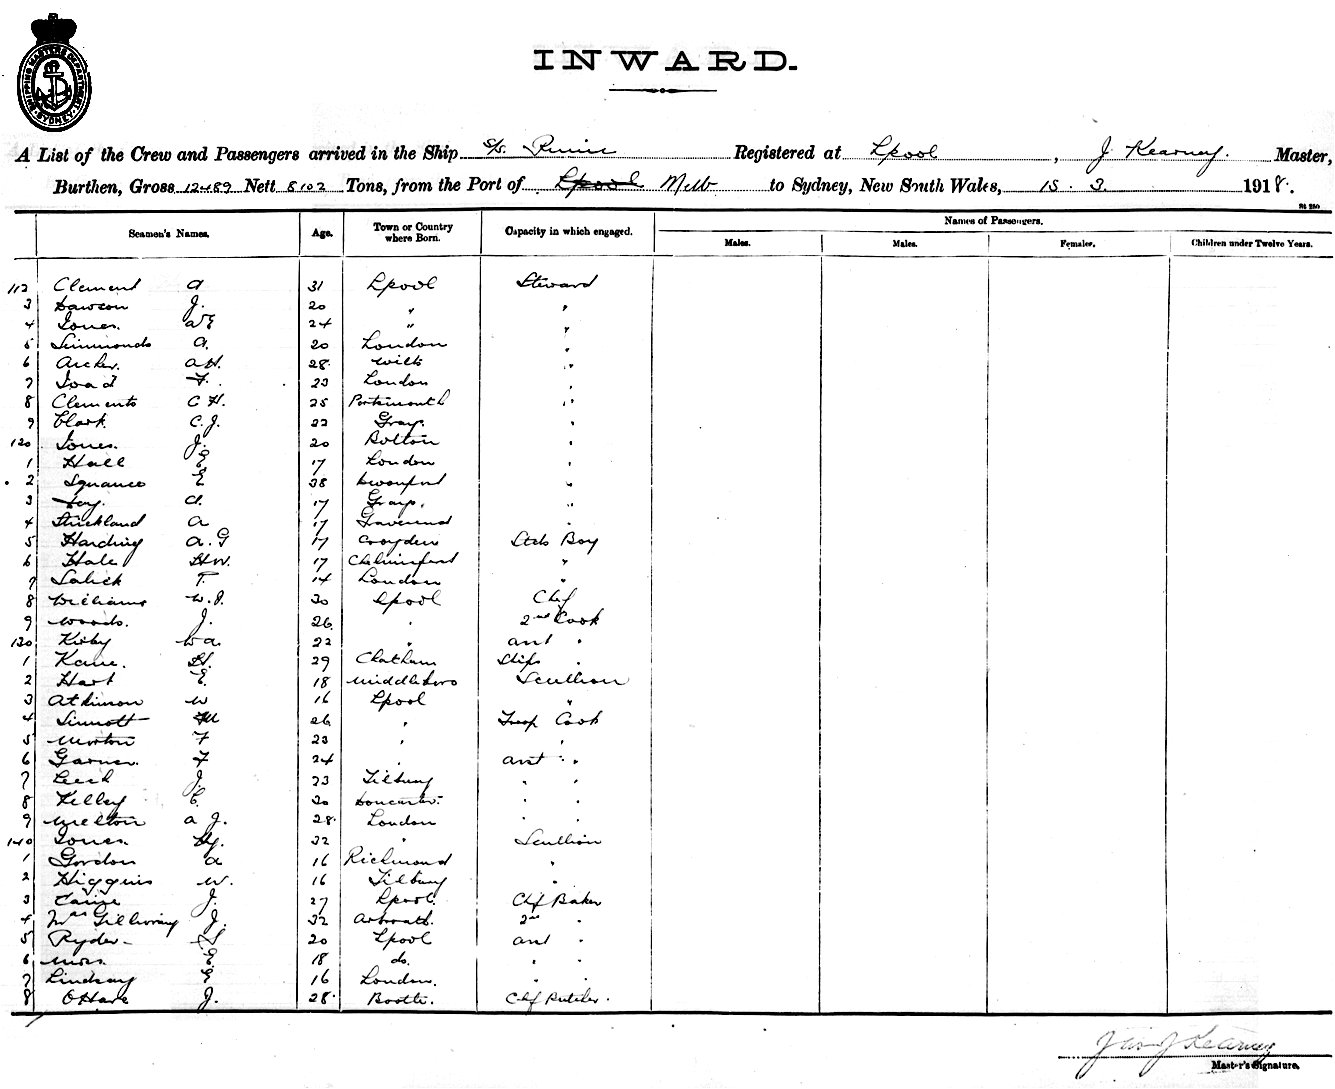 SHIPPING MASTERS DEPARTMENT SYDNEY
INWARD.
A List of the Crew and Passengers arrived in the Ship S/S. Runic Registered at Lpool, J. Kearney. Master,
Burthen, Gross 12489 Nett 8102 Tons, from the Port of Lpool Melb to Sydney, New South Wales, 15. 3. 1918.
Seamen's Names. Age. Town or Country where Born. Capacity in which engaged. Names of Passengers.
Males. Males. Females. Children under Twelve Years.
112 Clement A 31 Lpool Steward
3 Dawson J. 20 " "
4 Jones. 24 " "
5 Simmonds A. 20 London "
6 Archer. A.H. 28 Wilts "
7 Toad F. 23 London "
8 Clements C H. 25 Portsmouth "
9 Clark C. J. 22 Grays "
120 Jones. J. 20 Bolton "
1 Hall E 17 London "
2 Squance E 38 "
3 A. 17 Grays. "
4 Strickland A 17 Gravesend "
5 Harding A. G 17 Croydon Stds Boy
6 Hale H.W. 17 Chelmsford "
7 T. 14 London "
8 Williams W. P. 30 Lpool Chef
9 Woods. J. 26 " 2nd Cook
130 Kirby W A. 22 " Asst "
1 Kane. H. 29 Chatham Ships "
2 Hart E. 18 Middlesboro Scullion
3 Atkinson W 16 Lpool "
4 Sinnott M 26 " Troop Cook
5 Morton F 23 " "
6 Garner. F 24 " Asst "
7 Leech J. 23 Tilbury " "
8 Kelley C. 20 Doncaster. " "
9 Melton A J. 28 London " "
140 Jones. Hy. 32 " Scullion
1 Gordon A 16 Richmond "
2 Higgins W. 16 Tilbury "
3 J. 27 Lpool. Chf Baker
4 J. 32 Arbroath. 2nd "
5 Ryder 20 Lpool Asst "
6 Moss. E. 18 do. " "
7 Lindsay E 16 London. " "
8 O'Hare J. 28 Bootle. Chf Butcher.
Jas J Kearney
Master's Signature.